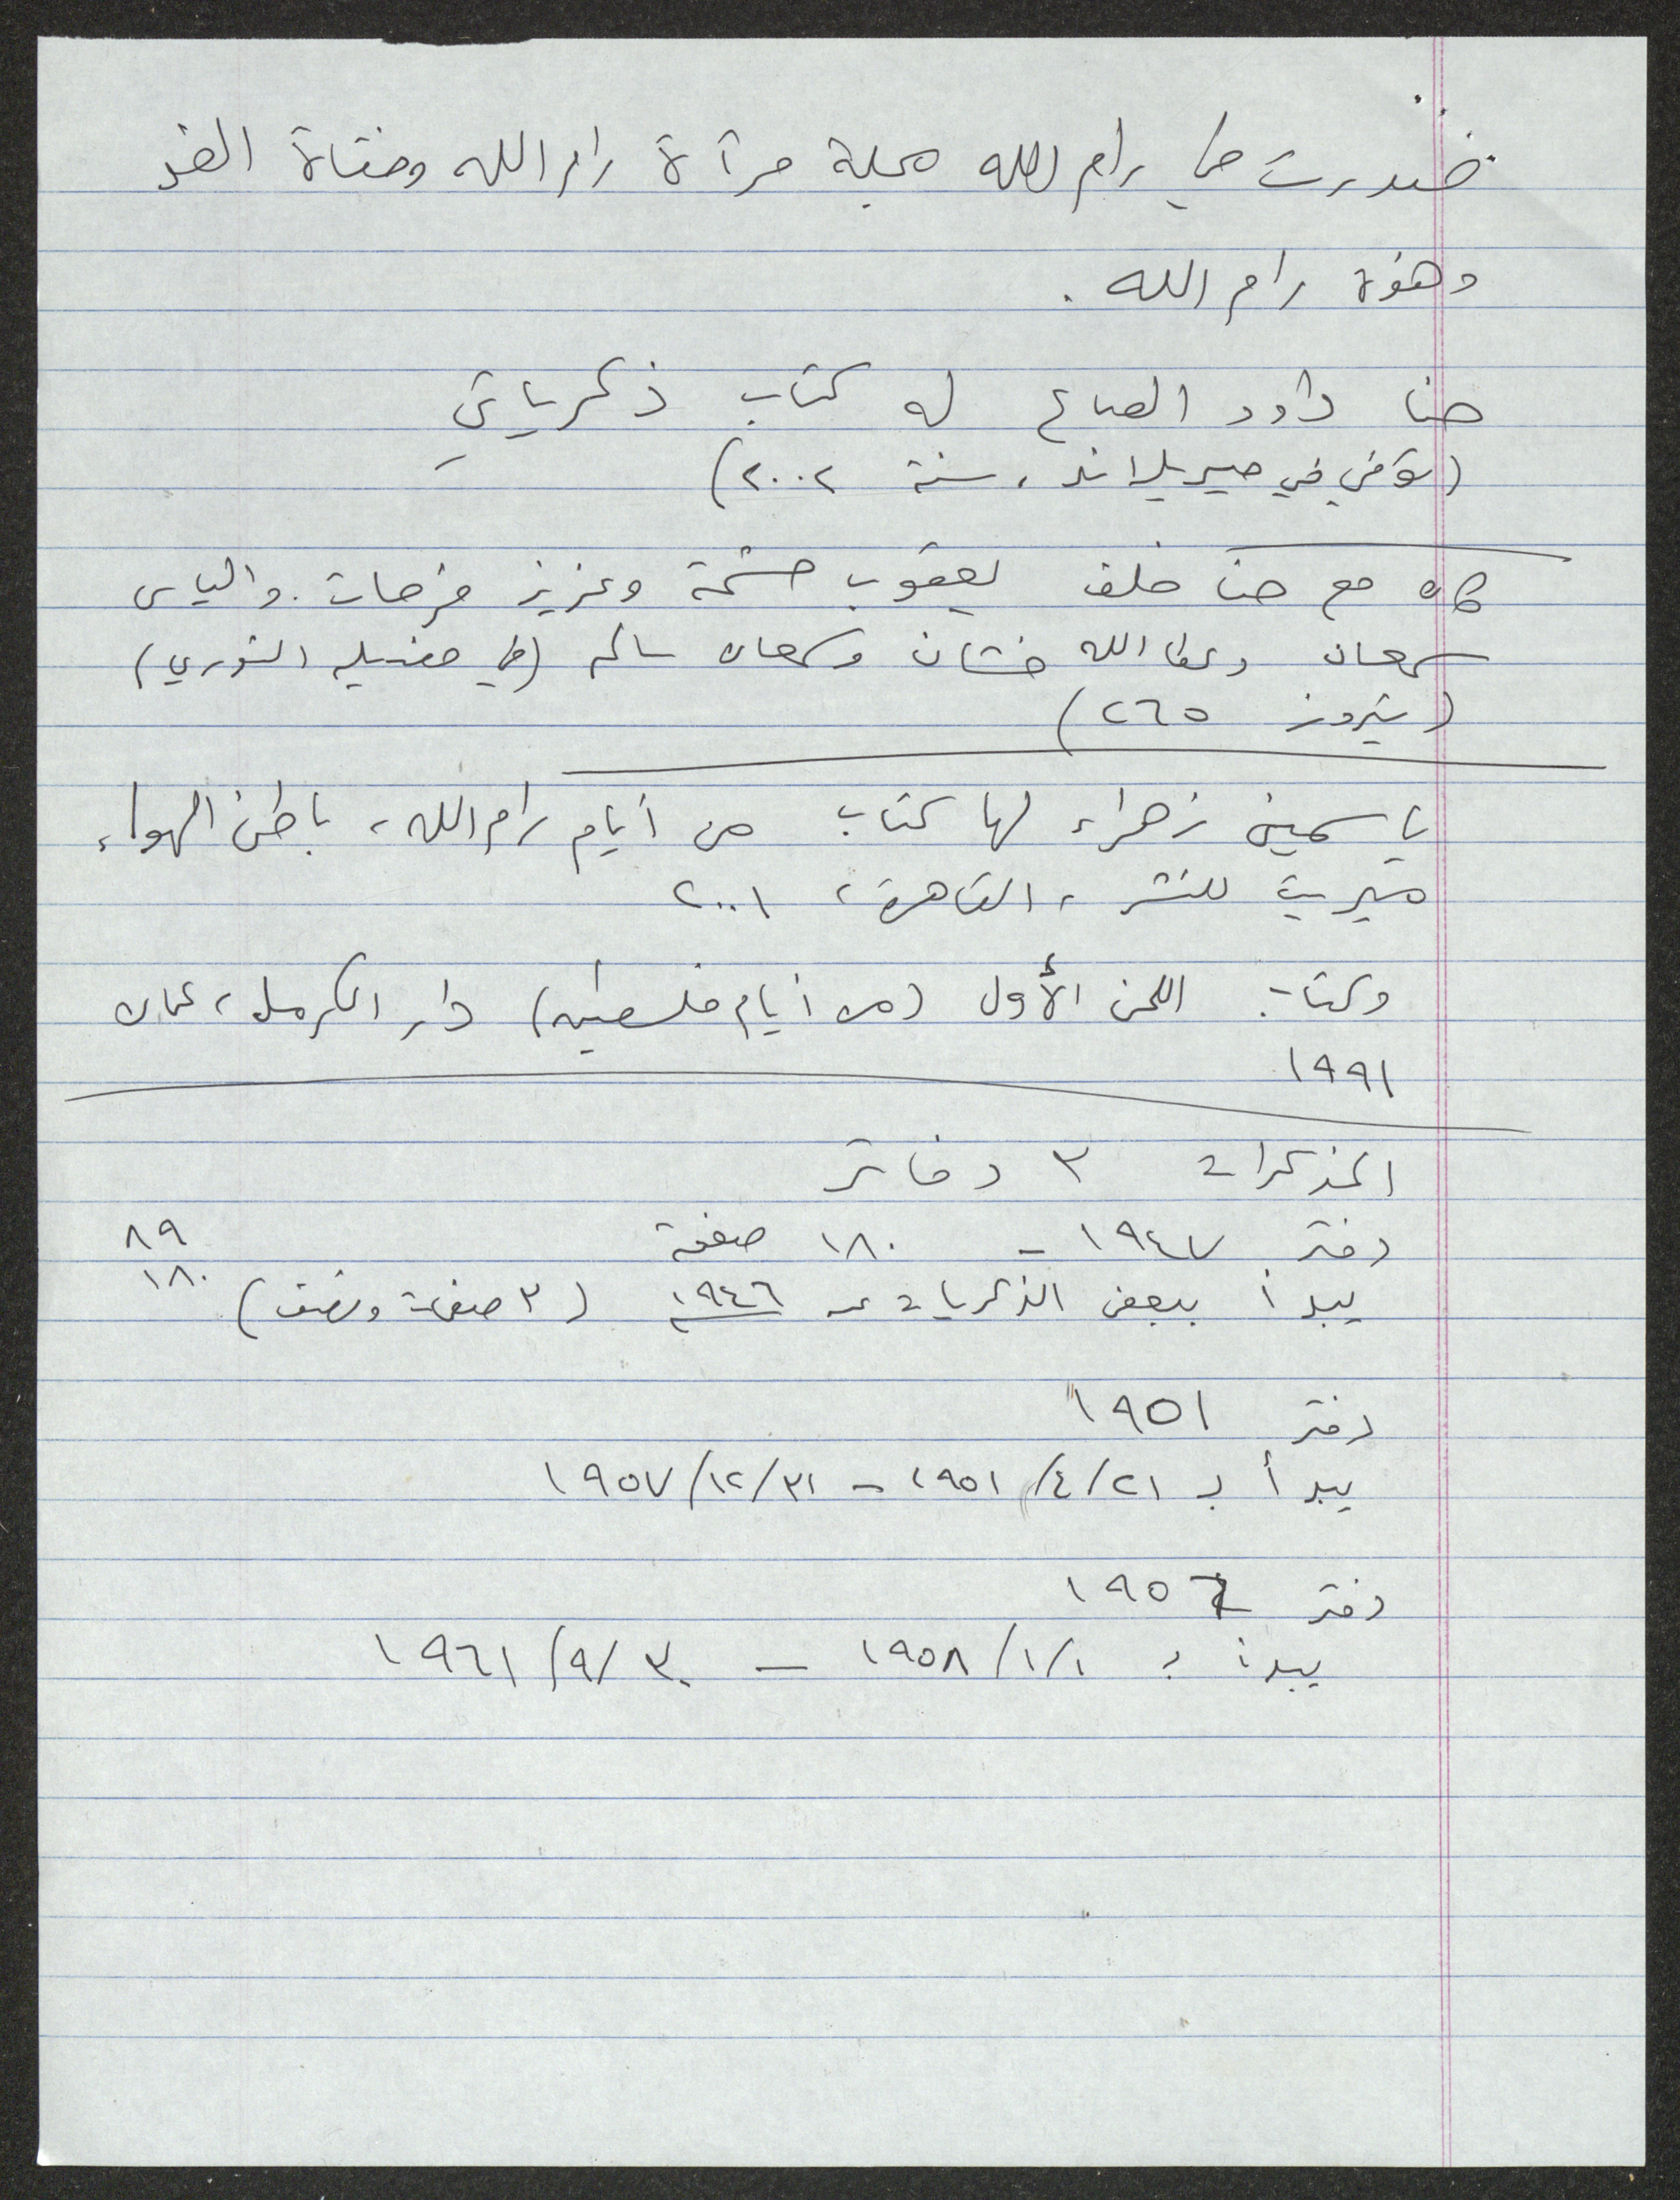 صدرت في رام الله مجلة مرآة رام الله وفتاة الغد
وهنوة رام الله .
حنا داود الصاع له كتاب ذكرياتي
(توفي في ميريلاند، سنة ٢٠٠٢)
كان مع حنا خلف يعقوب حشمة وعزيز فرحات. والياس
سمعان وعطا الله خشان وسمعان سالم (في مغسله النوري)
(نيروز ٢٦٥)
ياسمين زهراء لها كتاب من أيام رام الله، باطن الهواء
ميريت للنشر، القاهرة، ٢٠٠١
وكتاب اللحن الأول (من أيام فلسطين) دار الكرمل، عمان
١٩٩١
المذكرات ٣ دفاتر
دفتر ١٩٤٧ - ١٨٠ صفحة ٨٩
يبدأ ببعض الذكريات عن ١٩٤٦ (٣ صفحات ونصف) ١٨٠
دفتر ١٩٥١
يبدأ بـ ٢١/٤/١٩٥١ - ٣١/١٢/١٩٥٧
دفتر
يبدأ بـ ١/١/١٩٥٨ - ٣٠/٩/١٩٦١